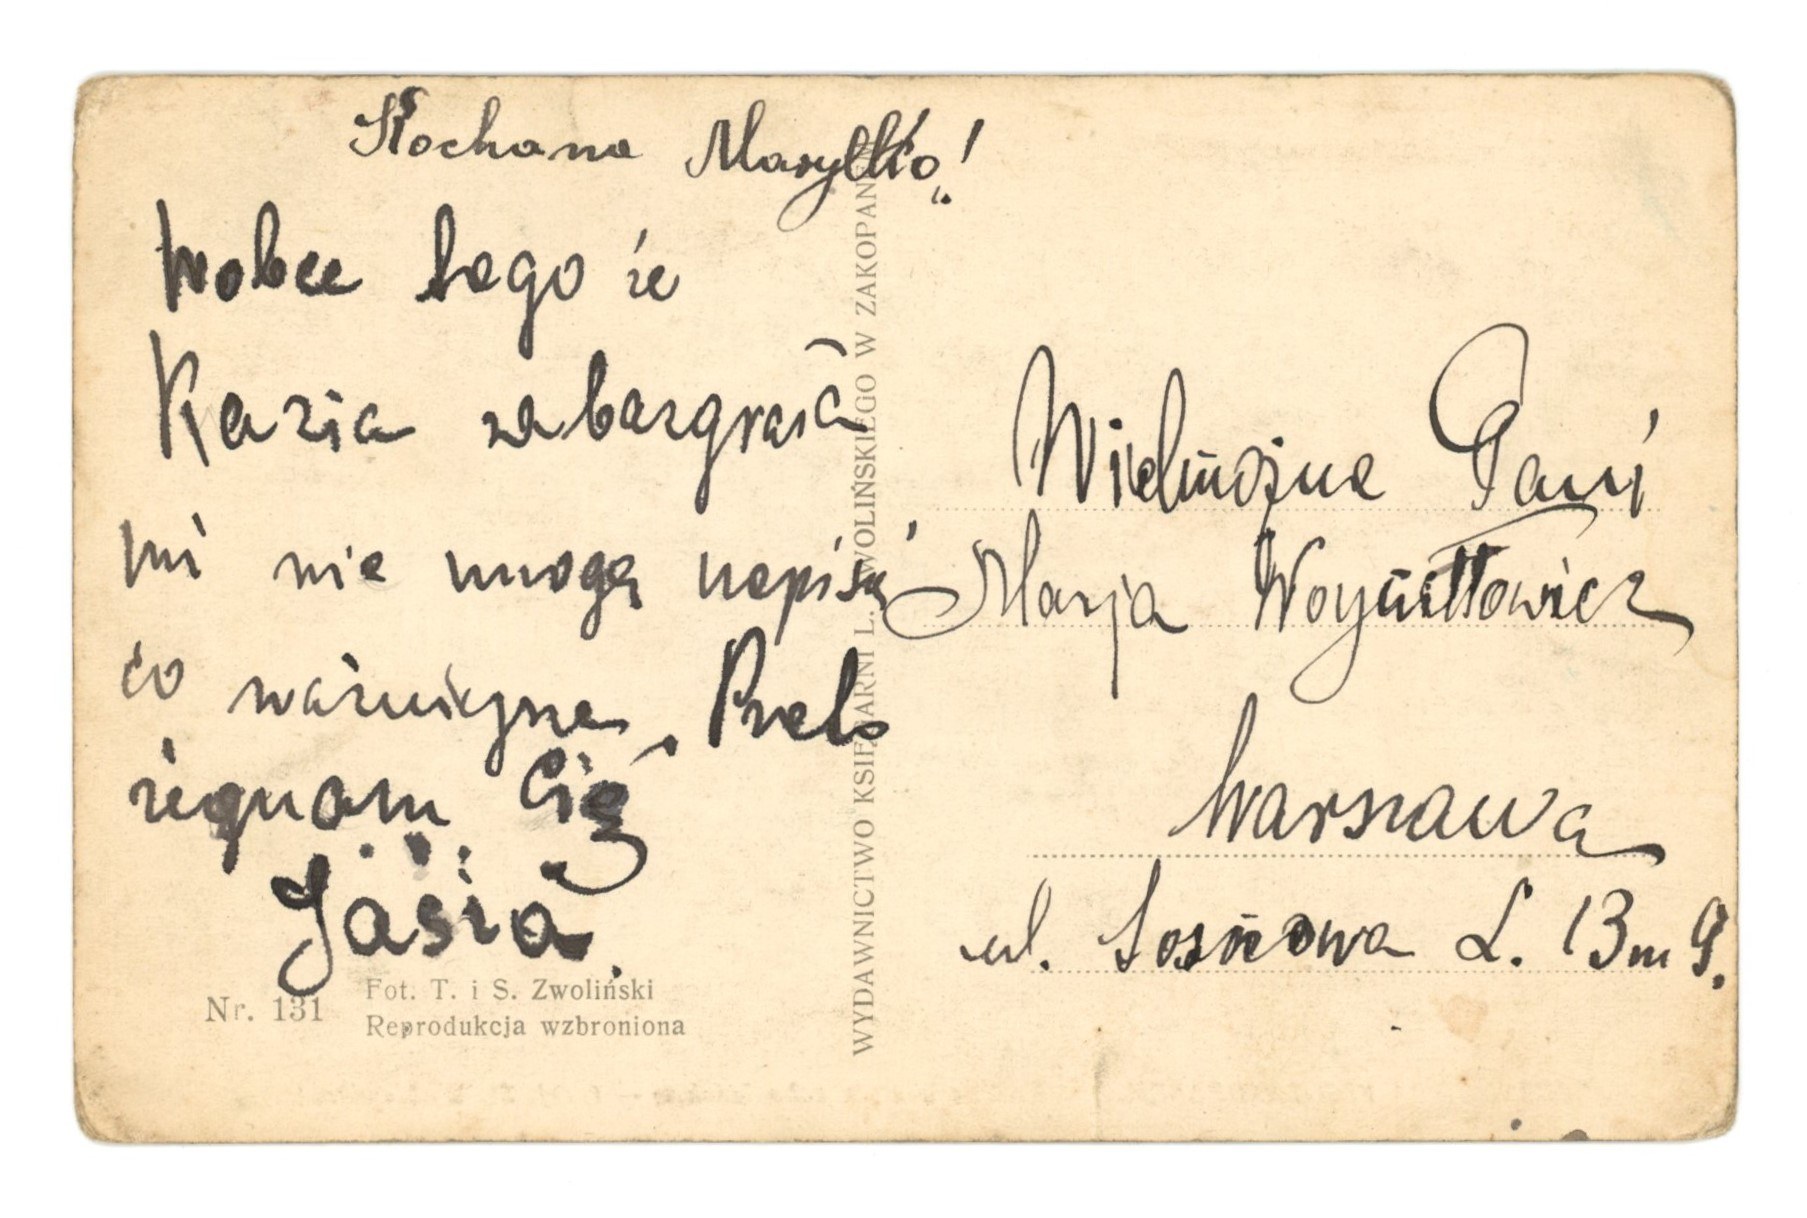 Kochana Marylko!
Wobec tego że
Kazia zabazgrała
mi nie mogę napisać
co ważniejsze. Precz
żegnam Cię
Jasia.
Nr. 131
Fot. T. i S. Zwoliński
Reprodukcja wzbroniona
WYDAWNICTWO KSIĘGARNI L. ZWOLIŃSKIEGO W ZAKOPANEM
Wielmożna Pani
Marja Woycittowicz
Warszawa
ul. Sosnowa L. 13 m 9.